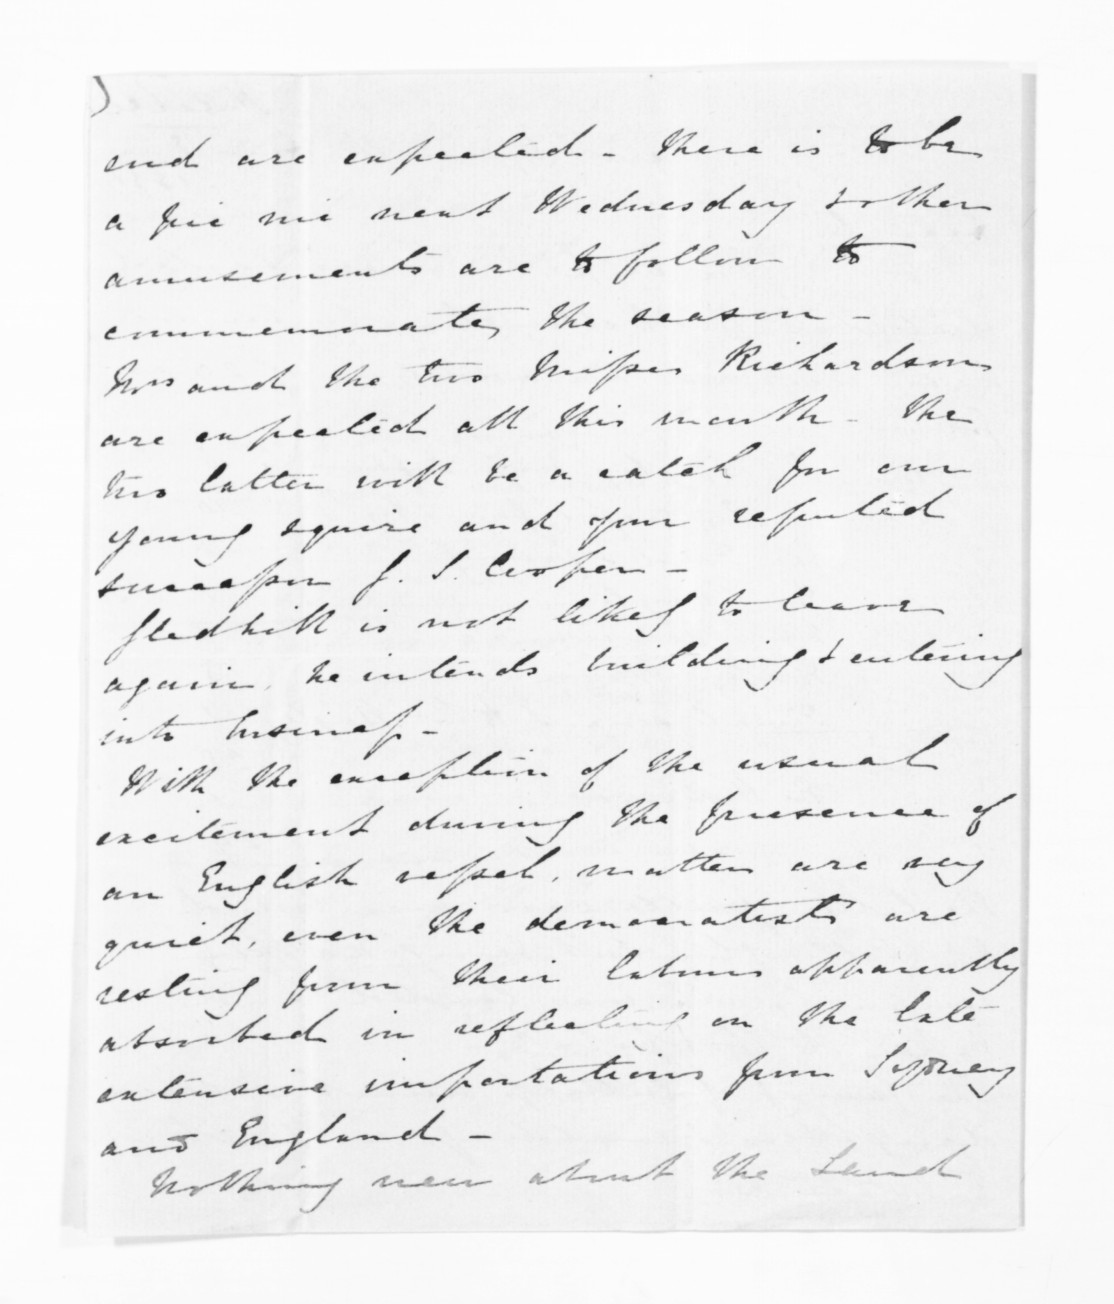 and are expected - There is to be
a pic nic next Wednesday & other
amusements are to follow to
commemorate, the season -
Mrs and the two Misses Richardson
are expected all this month - The
two latter will be a catch for our
young squire and your reputed
successor J. S. Cooper -
Gledhill is not likely to leave
again, he intends building & entering
into business -
With the exception of the usual
excitement during the presence of
an English vessel, matters are very
quiet, even the democratists are
resting from their labours apparently
absorbed in reflecting on the late
extensive importations from Sydney
and England -
Nothing new about the Land